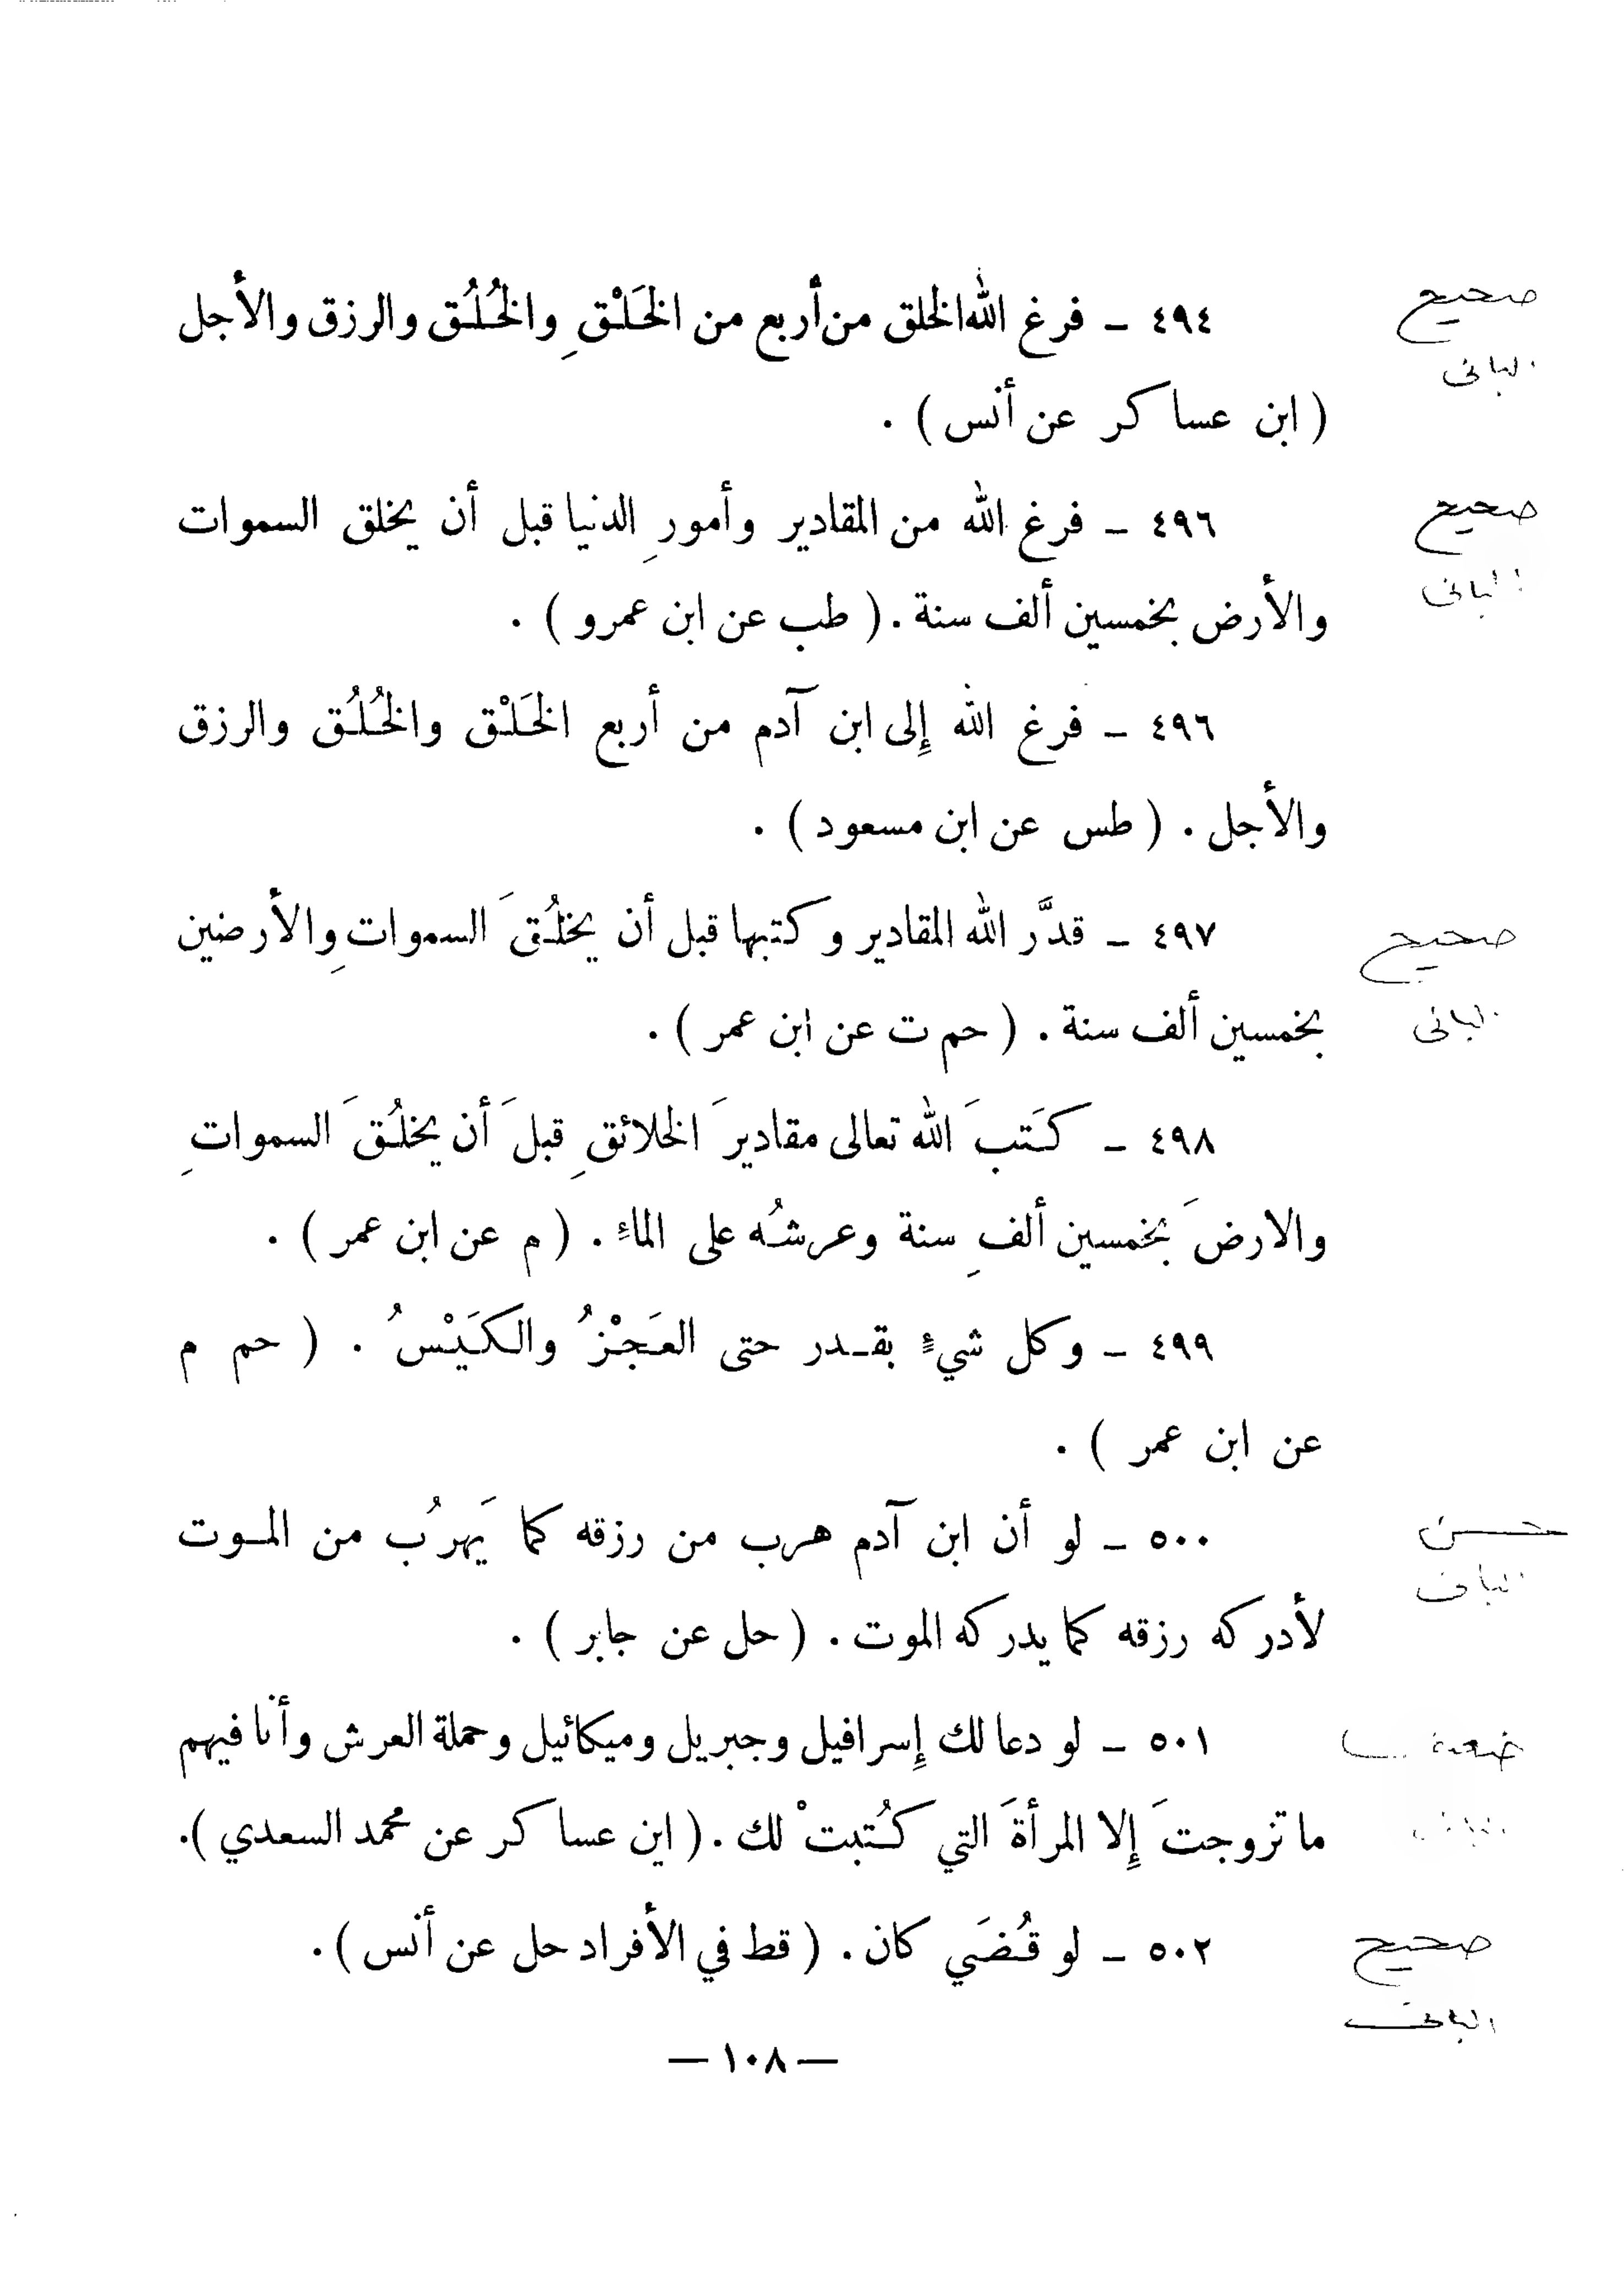 صحيح
٤٩٤ – فرغ الله الخلق من أربع من الخَلْقِ والخُلُق والرزق والأجل
البانى
( ابن عساكر عن أنس ) .
صحيح
٤٩٦ – فرغ الله من المقادير وأمورِ الدنيا قبل أن يخلق السموات
البانى
والأرض بخمسين ألف سنة . ( طب عن ابن عمرو ) .
٤٩٦ – فرغ الله إلى ابن آدم من أربع الخَلْق والخُلُق والرزق
والأجل . ( طس عن ابن مسعود ) .
صحيح
٤٩٧ – قدَّر الله المقادير وكتبها قبل أن يخلُقَ السمواتِ والأرضين
البانى
بخمسين ألف سنة . ( حم ت عن ابن عمر ) .
٤٩٨ – كَتبَ الله تعالى مقاديرَ الخلائقِ قبلَ أن يخلُقَ السمواتِ
والارضَ بخمسين ألفِ سنة وعرشُه على الماء . ( م عن ابن عمر ) .
٤٩٩ – وكل شيءٍ بقـدر حتى العَجْزُ والكَيْسُ . ( حم م
عن ابن عمر ) .
حسن
٥٠٠ – لو أن ابن آدم هرب من رزقه كما يَهرُب من المـوت
البانى
لأدركه رزقه كما يدركه الموت . ( حل عن جابر ) .
ضعيف
٥٠١ – لو دعا لك إسرافيل وجبريل وميكائيل وحملة العرش وأنا فيهم
ما تزوجتَ إلا المرأةَ التي كُتبتْ لك . ( اين عساكر عن محمد السعدي ).
صحيح
٥٠٢ – لو قُضَي كان . ( قط في الأفراد حل عن أنس ) .
البانى
— ١٠٨ —